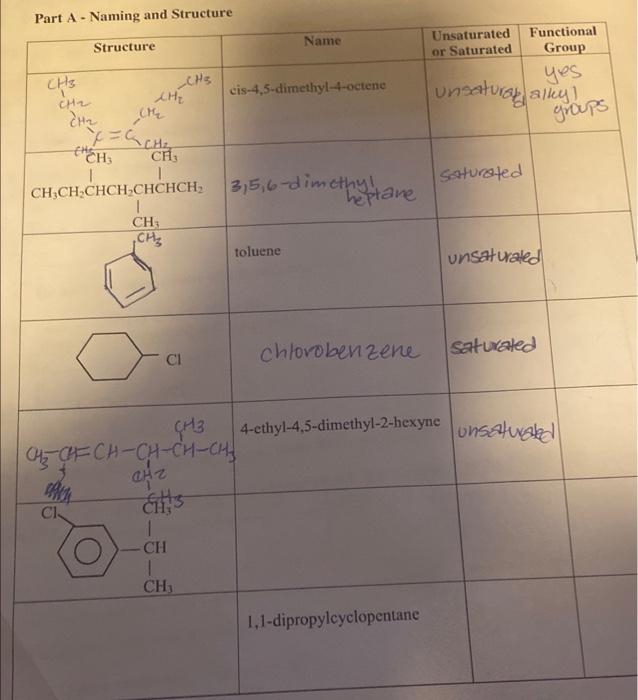 Part A - Naming and Structure
Structure
Name
Unsaturated
or Saturated
Functional
Group
CH3
CH2
CH2
C=C
CH3
CH2
CH2
CH2
CH3
cis-4,5-dimethyl-4-octene
unsaturated
yes
alkyl
groups
CH3 CH3
CH3CH2CHCH2CHCHCH2
CH3
3,5,6-dimethyl
heptane
saturated
CH3
toluene
unsaturated
Cl
chlorobenzene
saturated
CH3
CH3-CH=CH-CH-CH-CH3
CH2
CH3
4-ethyl-4,5-dimethyl-2-hexyne
unsaturated
Cl
CH3
CH
CH3
1,1-dipropylcyclopentane